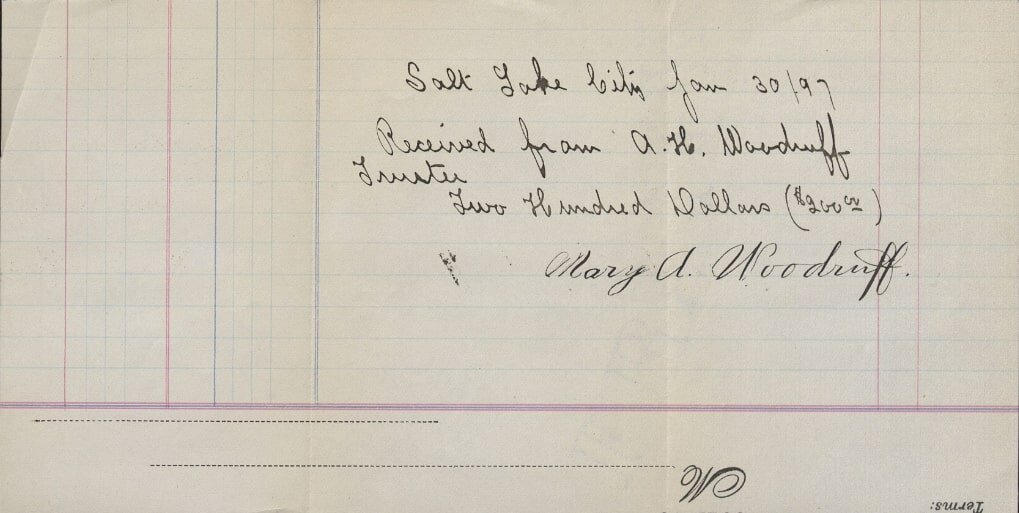 Salt Lake City Jan 30/97
Received from A. H. Woodruff
Trustee
Two Hundred Dollars ($200 00)
Mary A. Woodruff.
M
Terms: